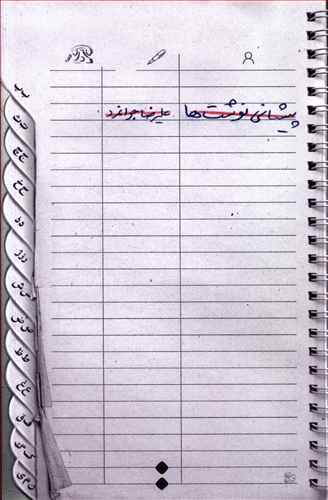 پیشانی نوشت‌ها علیرضا جوانمرد
ب پ
ت ث
ج چ
ح خ
د ذ
ر ز ژ
س ش
ص ض
ط ظ
ع غ
ف ق
ک گ
ل م ن